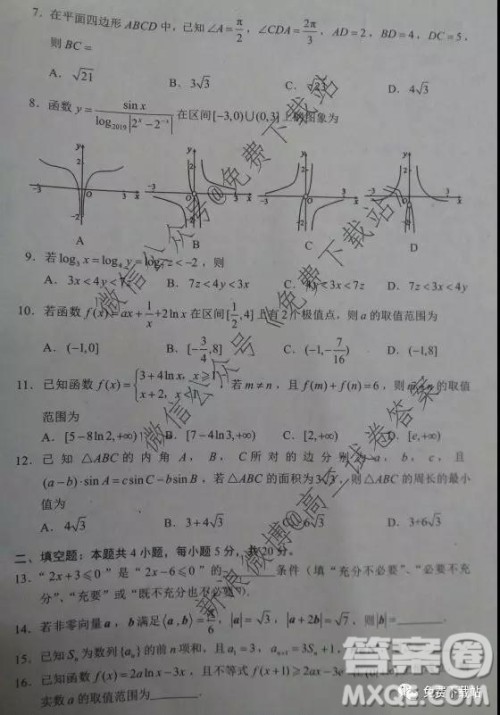 7. 在平面四边形 ABCD 中，已知 ∠A=π/2，∠CDA=2π/3，AD=2，BD=4，DC=5，
则 BC=
A. √21 B. 3√3 C. D. 4√3
8. 函数 y=sin x/log₂₀₁₉|2ˣ-2⁻ˣ| 在区间[-3,0)∪(0,3]上的图象为
A B C D
9. 若 log₃x=log₄y=log₇z<-2，则
A. 3x<4y<7z B. 7z<4y<3x C. 4y<3x<7z D. 7z<3x<4y
10. 若函数 f(x)=ax+1/x+2ln x 在区间[1/2,4]上有2个极值点，则 a 的取值范围为
A. (-1,0] B. [-3/4,8] C. (-∞,-7/16) D. (-1,8]
11. 已知函数 f(x)={3+4ln x, x≥1 x+2, x<1 若 m≠n，且 f(m)+f(n)=6，则 的取值
范围为
A. [5-8ln2,+∞) B. [7-4ln3,+∞) C. [2,+∞) D. [e,+∞)
12. 已知△ABC 的内角 A，B，C 所对的边分别为 a，b，c，且
(a-b)·sin A=c sin C-b sin B，若△ABC 的面积为3√3，则△ABC 的周长的最小
值为
A. 4√3 B. 3+4√3 C. 6√3 D. 3+6√3
二、填空题：本题共4小题，每小题5分，共20分。
13. “2x+3≤0”是“2x-6≤0”的______条件（填“充分不必要”、“必要不充
分”、“充要”或“既不充分也不必要”）.
14. 若非零向量 a，b 满足⟨a,b⟩=π/6，|a|=√3，|a+2b|=√7，则|b|=______.
15. 已知 Sₙ 为数列{aₙ}的前 n 项和，且 a₁=3，aₙ₊₁=3Sₙ+1，
16. 已知函数 f(x)=2a ln x-3x，且不等式 f(x+1)≥2ax-3e
实数 a 的取值范围为______.
微信公众号@免费下载站
微信公众号《免费下载站》
新浪微博@高三试卷答案
答案圈
MXQE.COM
免费下载站